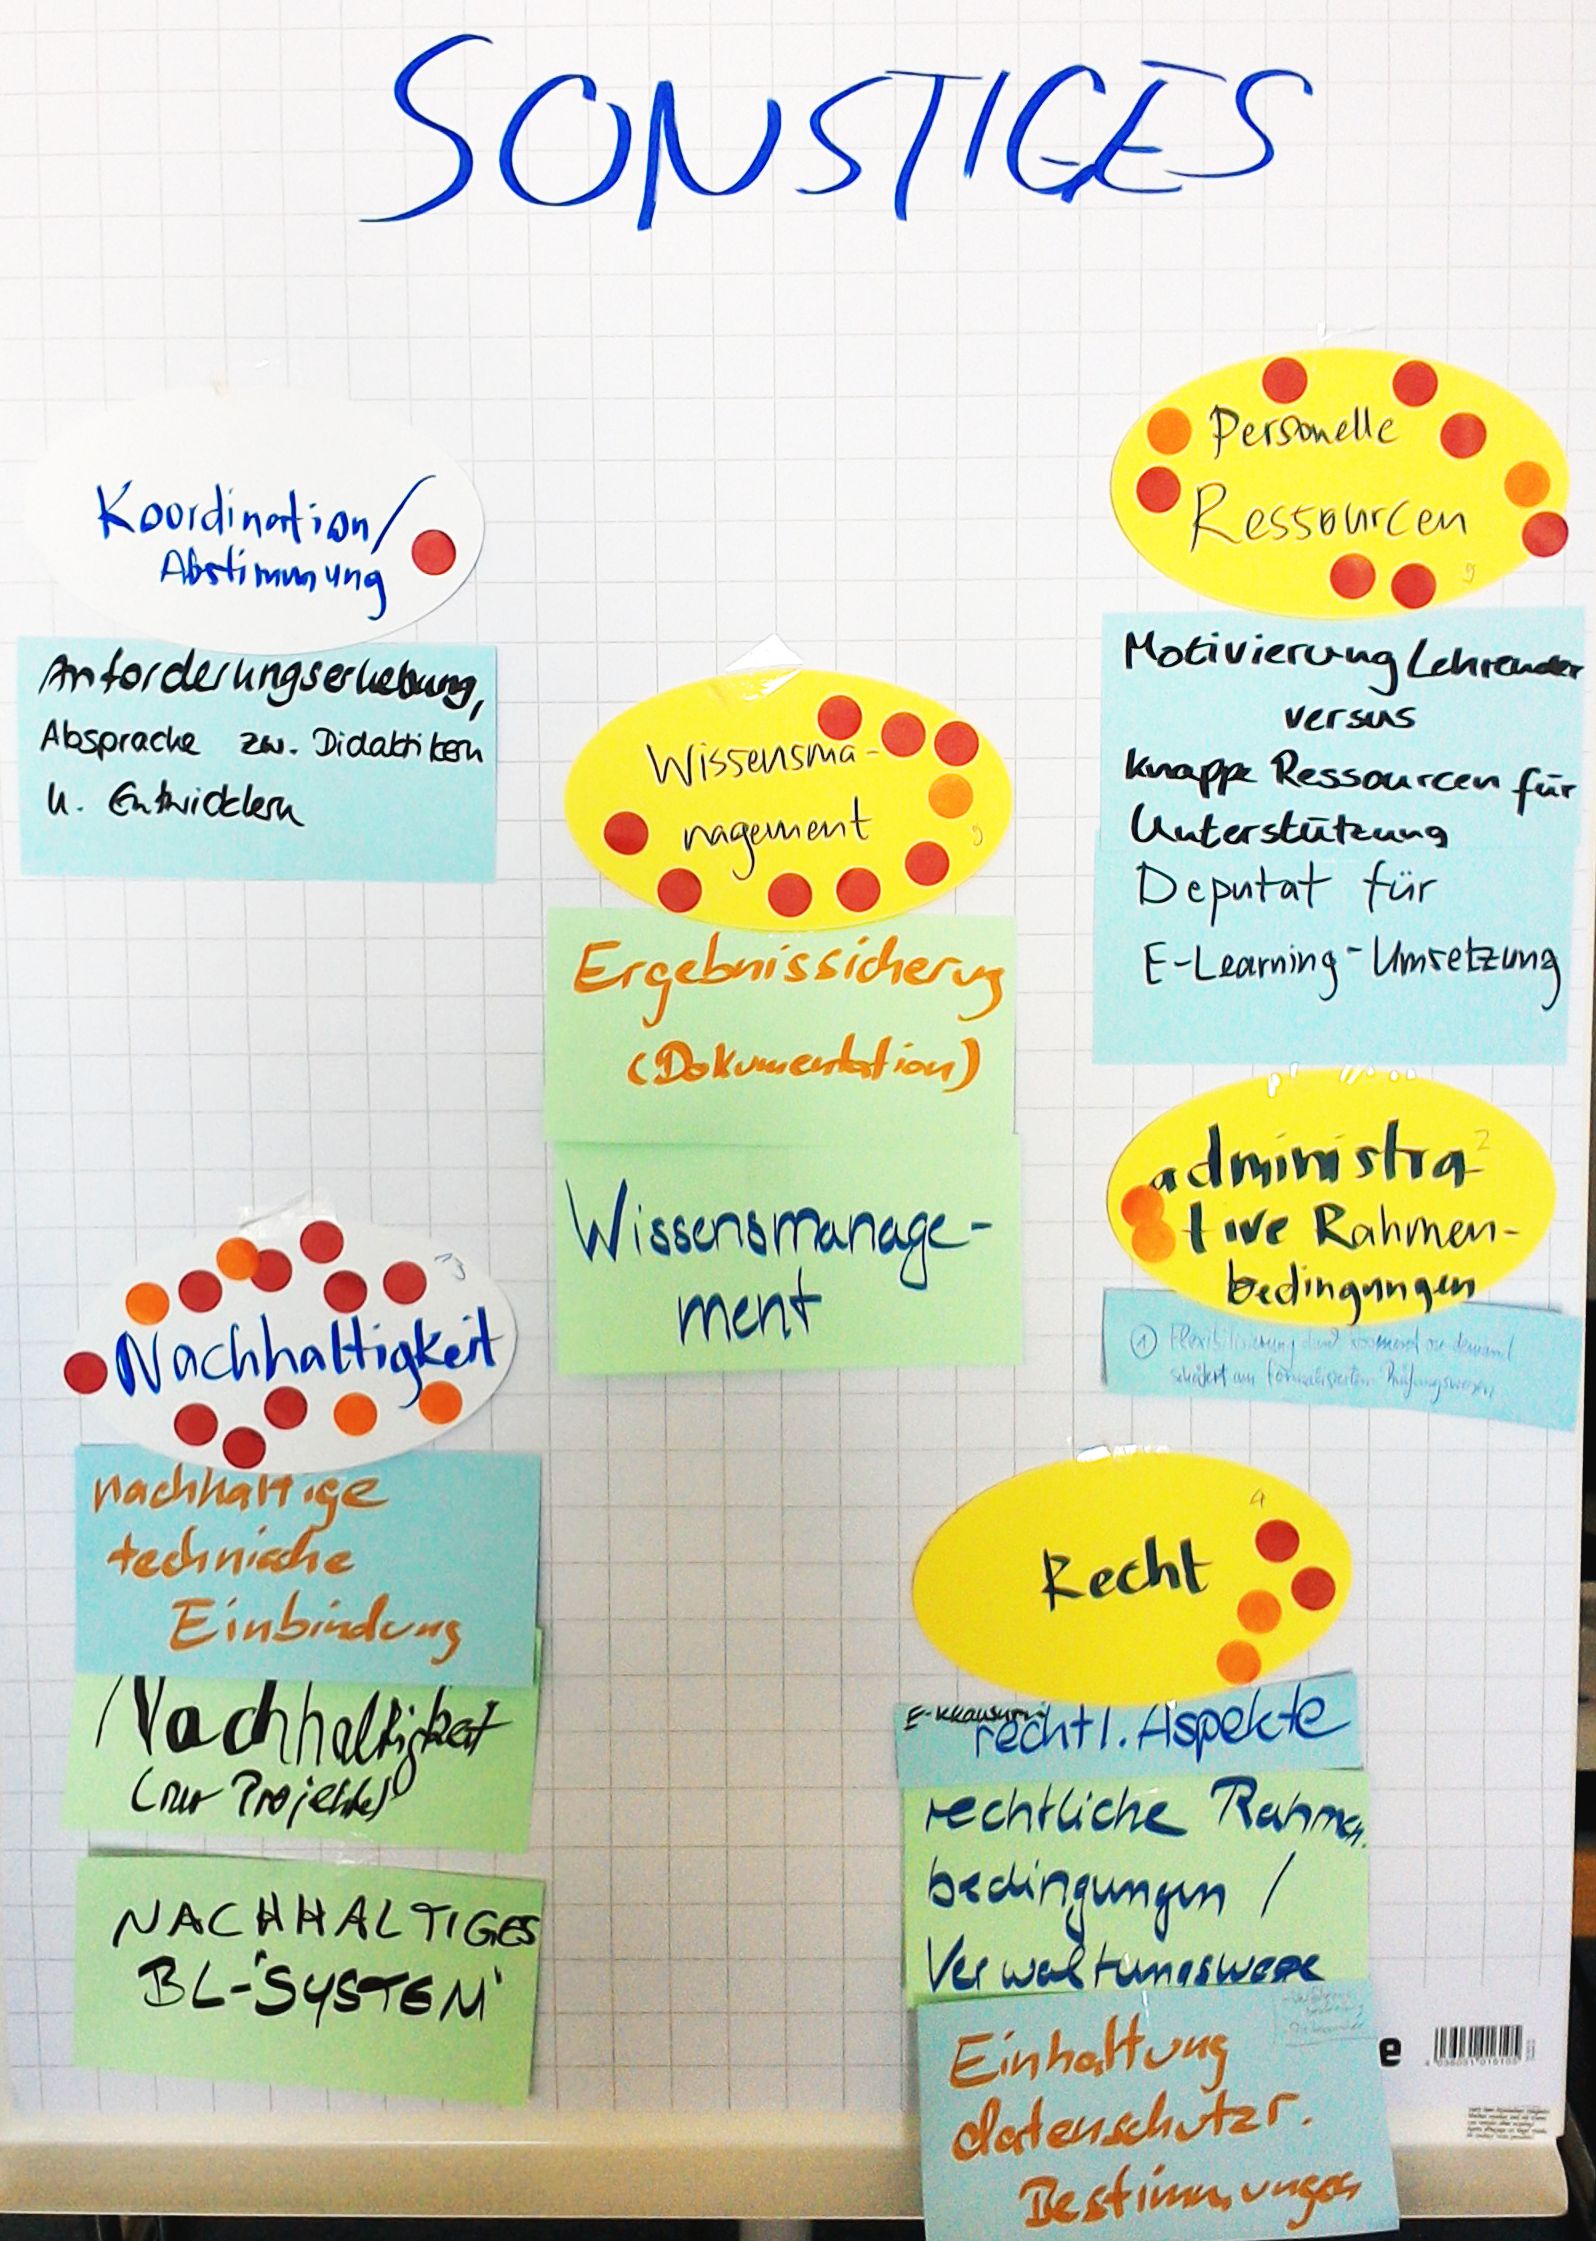 SONSTIGES
Koordination/
Abstimmung
Anforderungserhebung,
Absprache zw. Didaktikern
u. Entwicklern
Wissensma-
nagement
9
Ergebnissicherung
(Dokumentation)
Wissensmanage-
ment
Personelle
Ressourcen
9
Motivierung Lehrender
versus
knappe Ressourcen für
Unterstützung
Deputat für
E-Learning-Umsetzung
administra-
2
tive Rahmen-
bedingungen
① Flexibilisierung on demand
Nachhaltigkeit
nachhaltige
technische
Einbindung
Nachhaltigkeit
(nur Projekte)
NACHHALTIGES
BL-"SYSTEM"
4
Recht
E-Klausuren
rechtl. Aspekte
rechtliche Rahmen-
bedingungen /
Verwaltungswege
Einhaltung
datenschutzr.
Bestimmungen
e